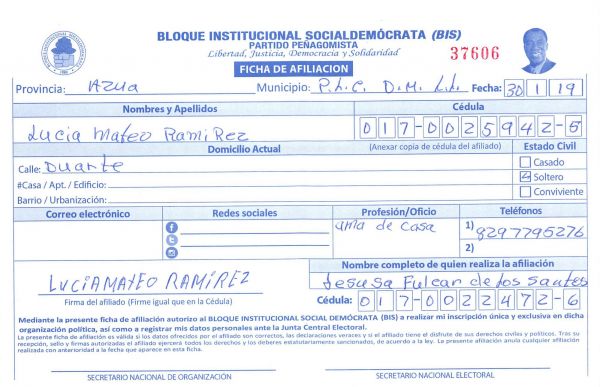 BLOQUE INSTITUCIONAL SOCIALDEMÓCRATA (BIS)
PARTIDO PEÑAGOMISTA
Libertad, Justicia, Democracia y Solidaridad
37606
FICHA DE AFILIACION
Provincia: Azua Municipio: P.L.C. D.M. L.L. Fecha: 30 1 19
Nombres y Apellidos Cédula
Lucia Mateo Ramirez 017-0025942-5
Domicilio Actual (Anexar copia de cédula del afiliado) Estado Civil
Calle: Duarte Casado
#Casa / Apt. / Edificio: Soltero
Barrio / Urbanización: Conviviente
Correo electrónico Redes sociales Profesión/Oficio Teléfonos
ama de casa 1) 8297795276
2)
LUCIA MATEO RAMIREZ Nombre completo de quien realiza la afiliación
Jesusa Fulcar de los Santos
Firma del afiliado (Firme igual que en la Cédula) Cédula: 017-0022472-6
Mediante la presente ficha de afiliación autorizo al BLOQUE INSTITUCIONAL SOCIAL DEMÓCRATA (BIS) a realizar mi inscripción única y exclusiva en dicha
organización política, así como a registrar mis datos personales ante la Junta Central Electoral.
La presente ficha de afiliación es válida si los datos ofrecidos por el afiliado son correctos, las declaraciones veraces y si el afiliado tiene el disfrute de sus derechos civiles y políticos. Tras su
recepción, sello y firmas autorizadas el afiliado ejercerá todos los derechos y los deberes estatutariamente sancionados, de acuerdo a la ley. La presente afiliación anula cualquier afiliación
realizada con anterioridad a la fecha que aparece en esta ficha.
SECRETARIO NACIONAL DE ORGANIZACIÓN SECRETARIO NACIONAL ELECTORAL